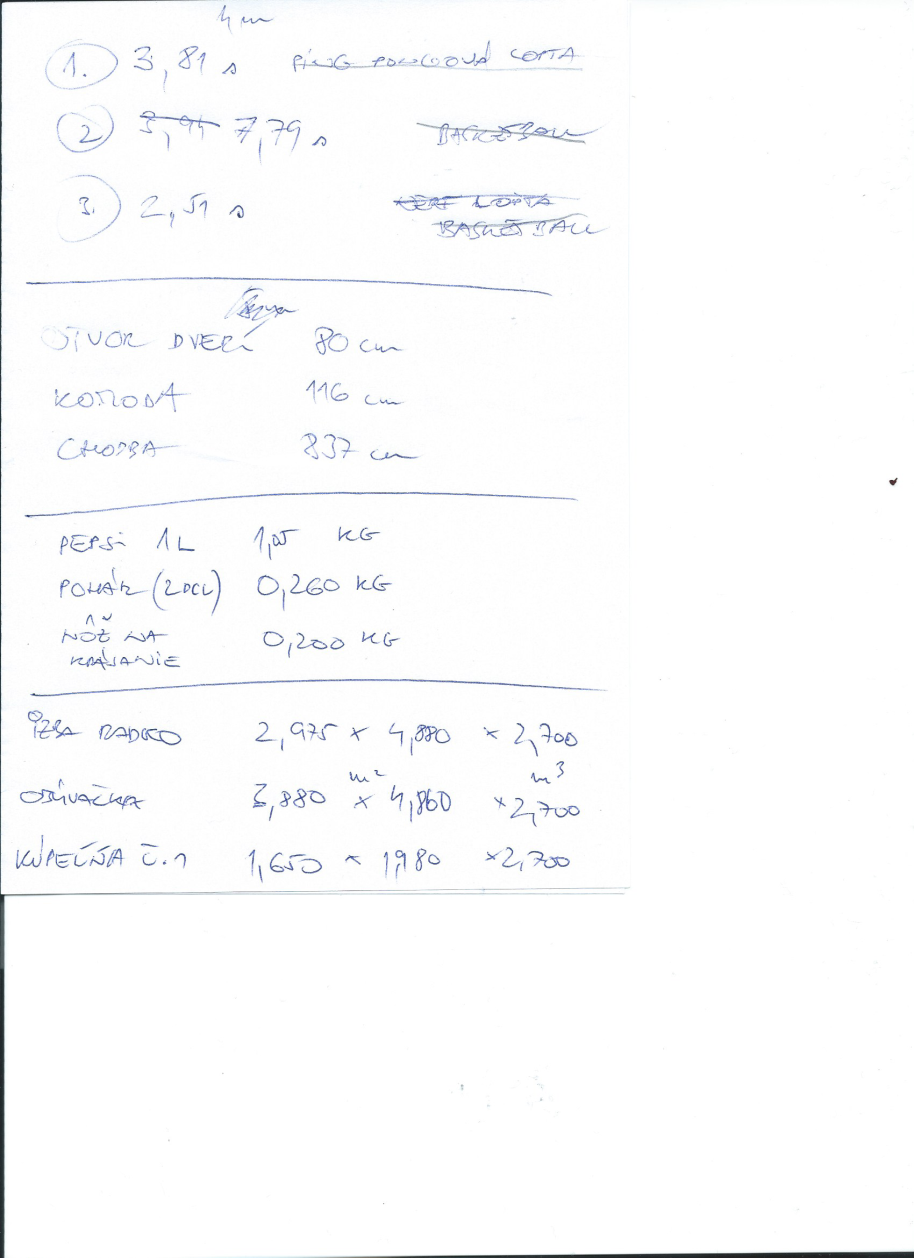 4 m
1. 3,81 s PING PONGOVÁ LOPTA
2 3,94 7,79 s BASKETBALL
3. 2,51 s LOPTA
BASKETBALL
OTVOR DVERÍ 80 cm
KOMODA 116 cm
CHODBA 837 cm
PEPSI 1L 1,05 KG
POHÁR (2DCL) 0,260 KG
NÔŽ NA 0,200 KG
KRÁJANIE
IZBA RADKO 2,975 x 4,880 x 2,700
m² m³
OBÝVAČKA 3,880 x 4,860 x 2,700
KÚPEĽŇA Č.1 1,650 x 1,980 x 2,700